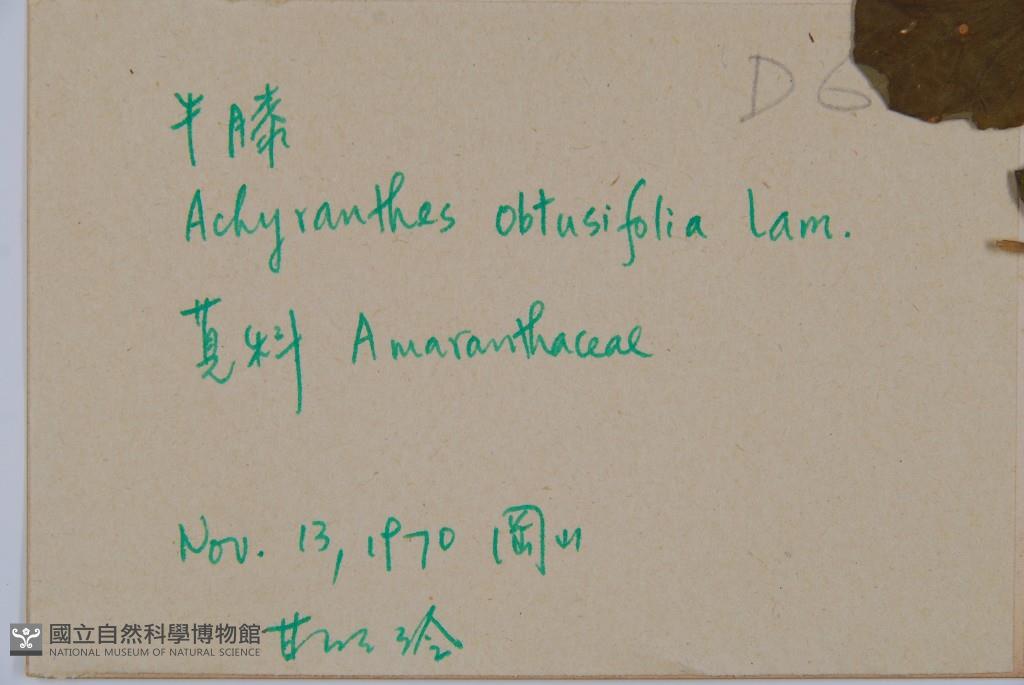 D6
牛膝
Achyranthes obtusifolia Lam.
莧科 Amaranthaceae
Nov. 13, 1970 岡山
國立自然科學博物館
NATIONAL MUSEUM OF NATURAL SCIENCE